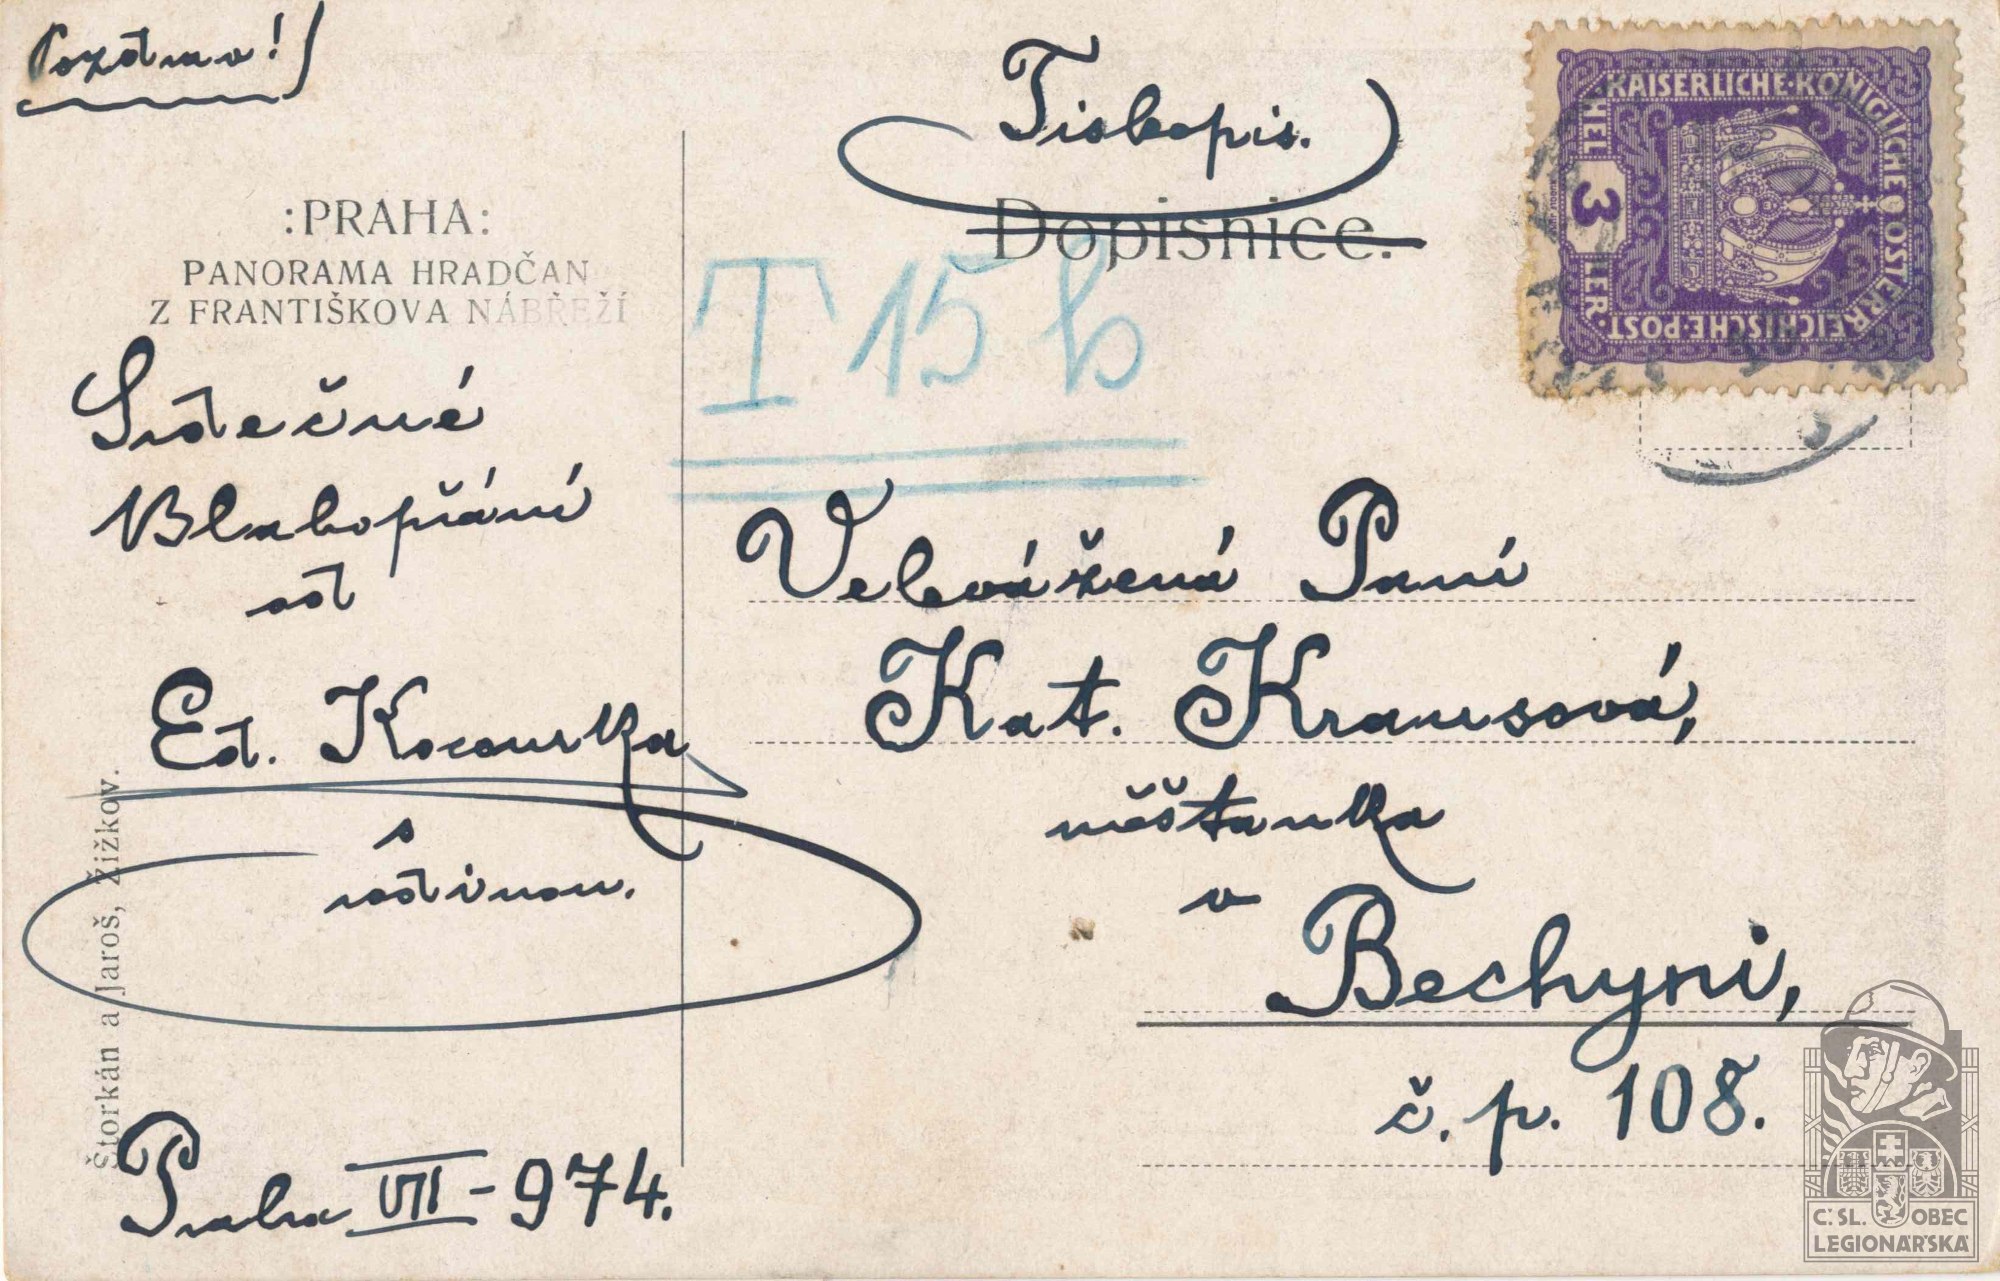 Pozdrav!
:PRAHA:
PANORAMA HRADČAN
Z FRANTIŠKOVA NÁBŘEŽÍ
Srdečné
Blahopřání
od
Ed. Kocourka
s
rodinou.
Praha VII-974.
Štorkán a Jaroš, Žižkov.
Tiskopis.
Dopisnice.
T 15 h
KAISERLICHE·KÖNIGLICHE ÖSTERREICHISCHE·POST
HEL 3 LER
Velevážená Paní
Kat. Krausová,
měšťanka
v
Bechyni,
č. p. 108.
Č.SL. OBEC
LEGIONÁŘSKÁ